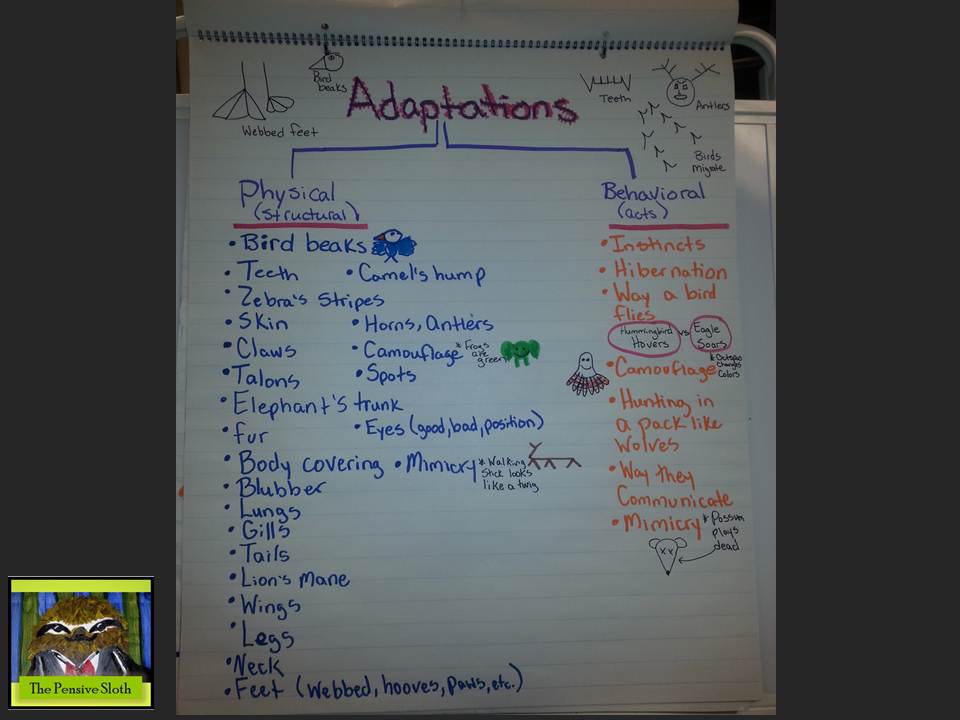 Bird
beaks
Webbed feet
Adaptations
Teeth
Antlers
Birds
Migrate
Physical
(structural)
• Bird beaks
• Teeth
• Camel's hump
• Zebra's Stripes
• Skin
• Horns, Antlers
• Claws
• Camouflage * Frogs
are
green
• Talons
• Spots
• Elephant's trunk
• fur
• Eyes (good, bad, position)
• Body covering
• Mimicry * Walking
Stick looks
like a twig
• Blubber
• Lungs
• Gills
• Tails
• Lion's Mane
• Wings
• Legs
• Neck
• Feet (Webbed, hooves, paws, etc.)
Behavioral
(acts)
• Instincts
• Hibernation
• Way a bird
flies
Hummingbird
Hovers
vs
Eagle
Soars
• Camouflage
* Octopus
changes
Colors
• Hunting in
a pack like
Wolves
• Way they
Communicate
• Mimicry * Possum
plays
dead
The Pensive Sloth